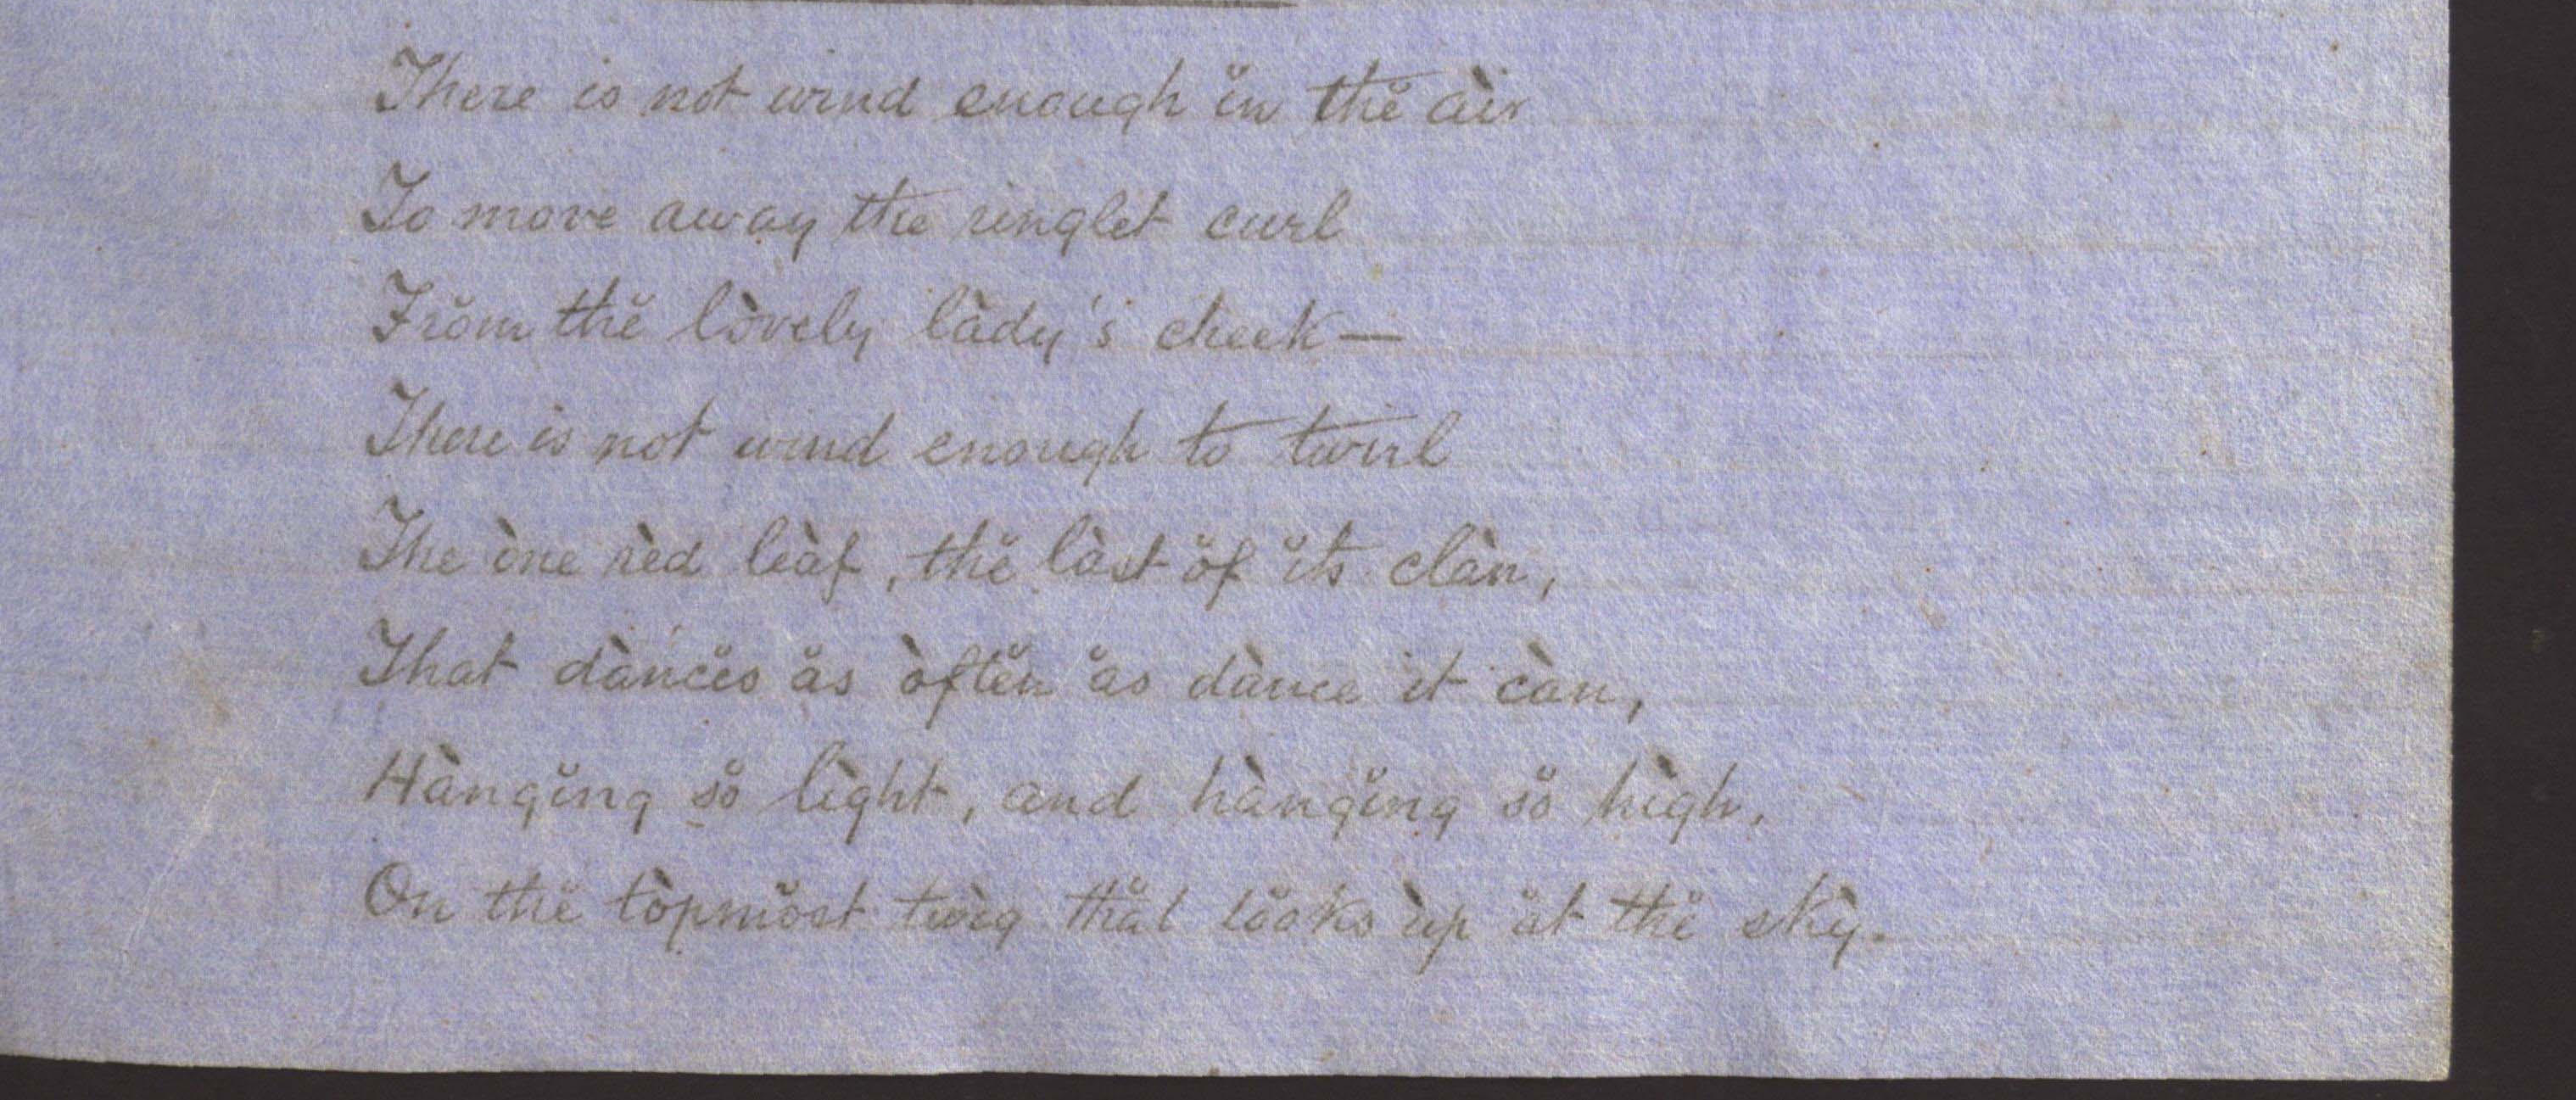 There is not wind enough ĭn thĕ àir
To move away the ringlet curl
Frŏm thĕ lòvely làdy's cheek—
There is not wind enough to twirl
The òne rèd leàf, thĕ làst ŏf ĭts clàn,
That dàncĕs ăs òftĕn ăs dànce ĭt càn,
Hàngĭng sŏ lìght, and hàngĭng sŏ hìgh,
On thĕ tòpmŏst twìg thăt lŏoks ùp ăt thĕ skỳ.